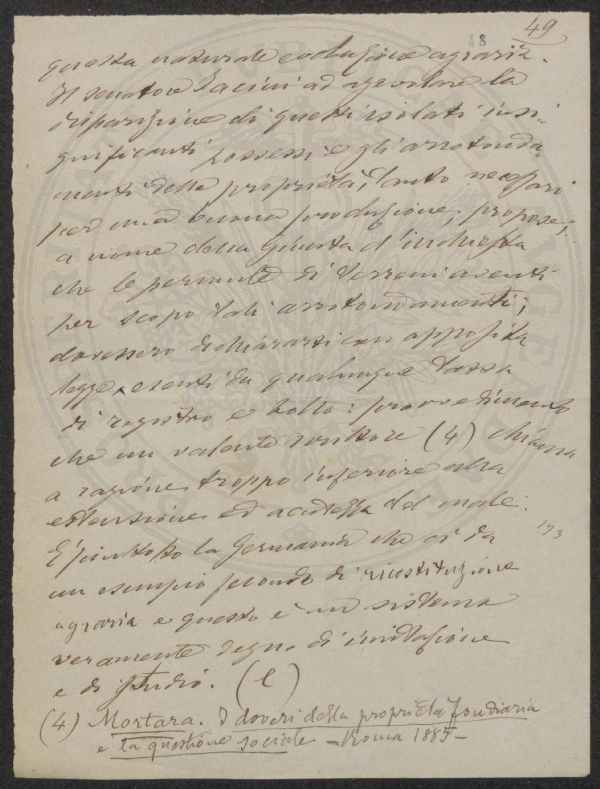 49
48
questa naturale evoluzione agraria.
Il senatore Jacini ad agevolare la
sparizione di questi isolati insi-
gnificanti possessi e gli arrotonda-
menti della proprietà, tanto necessari
per una buona produzione, propose,
a nome della Giunta d'inchiesta
che le permute di terreni aventi
per scopo tali arrotondamenti;
dovessero dichiararsi con apposita
legge esenti da qualunque tassa
di registro e bollo: provvedimento
che un valente scrittore (4) chiama
a ragione troppo inferiore alla
estensione ed acutezza del male.
193
È piuttosto la Germania che ci dà
un esempio fecondo di ricostituzione
agraria e questo è un sistema
veramente degno di imitazione
e di studio. (e)
(4) Mortara. I doveri della proprietà fondiaria
e la questione sociale - Roma 1885 -